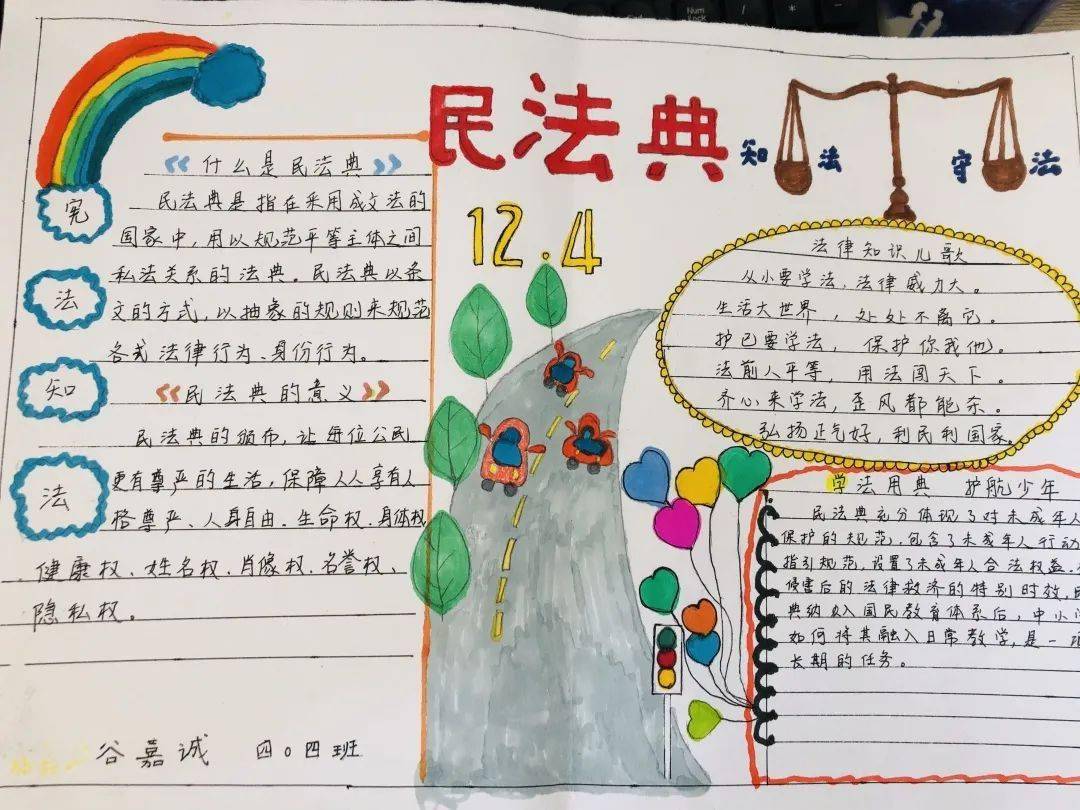 民法典
知法 守法
12.4
宪
法
知
法
什么是民法典
民法典是指在采用成文法的
国家中,用以规范平等主体之间
私法关系的法典。民法典以条
文的方式,以抽象的规则来规范
各式法律行为、身份行为。
民法典的意义
民法典的颁布,让每位公民
更有尊严的生活,保障人人享有人
格尊严、人身自由、生命权、身体权
健康权、姓名权、肖像权、名誉权、
隐私权。
谷嘉诚 四〇四班
法律知识儿歌
从小要学法,法律威力大。
生活大世界,处处不离它。
护己要学法,保护你我他)。
法前人平等,用法闯天下。
齐心来学法,歪风都能杀。
弘扬正气好,利民利国家。
学法用典 护航少年
民法典充分体现了对未成年人
保护的规范,包含了未成年人行动
指引规范,设置了未成年人合法权益
侵害后的法律救济的特别时效,
典纳入国民教育体系后,中小
如何将其融入日常教学,是一
长期的任务。
Num
Lock
/
*
-